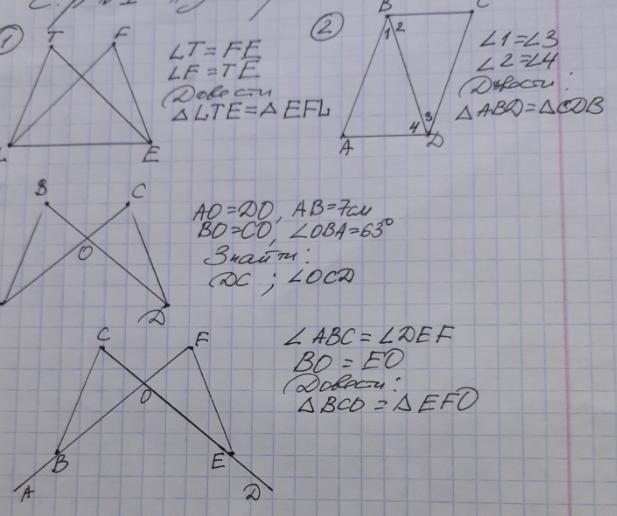 1
T F
LT = FE
LF = TE
Довести
△ LTE = △ EFL
L E
2
B C
1 2
∠1 = ∠3
∠2 = ∠4
Довести:
△ ABD = △ CDB
4 3
A D
B C
O
D
AO = DO, AB = 7см
BO = CO, ∠OBA = 63°
Знайти:
DC ; ∠OCD
C F
O
B E
A D
∠ABC = ∠DEF
BO = EO
Довести:
△ BCO = △ EFO